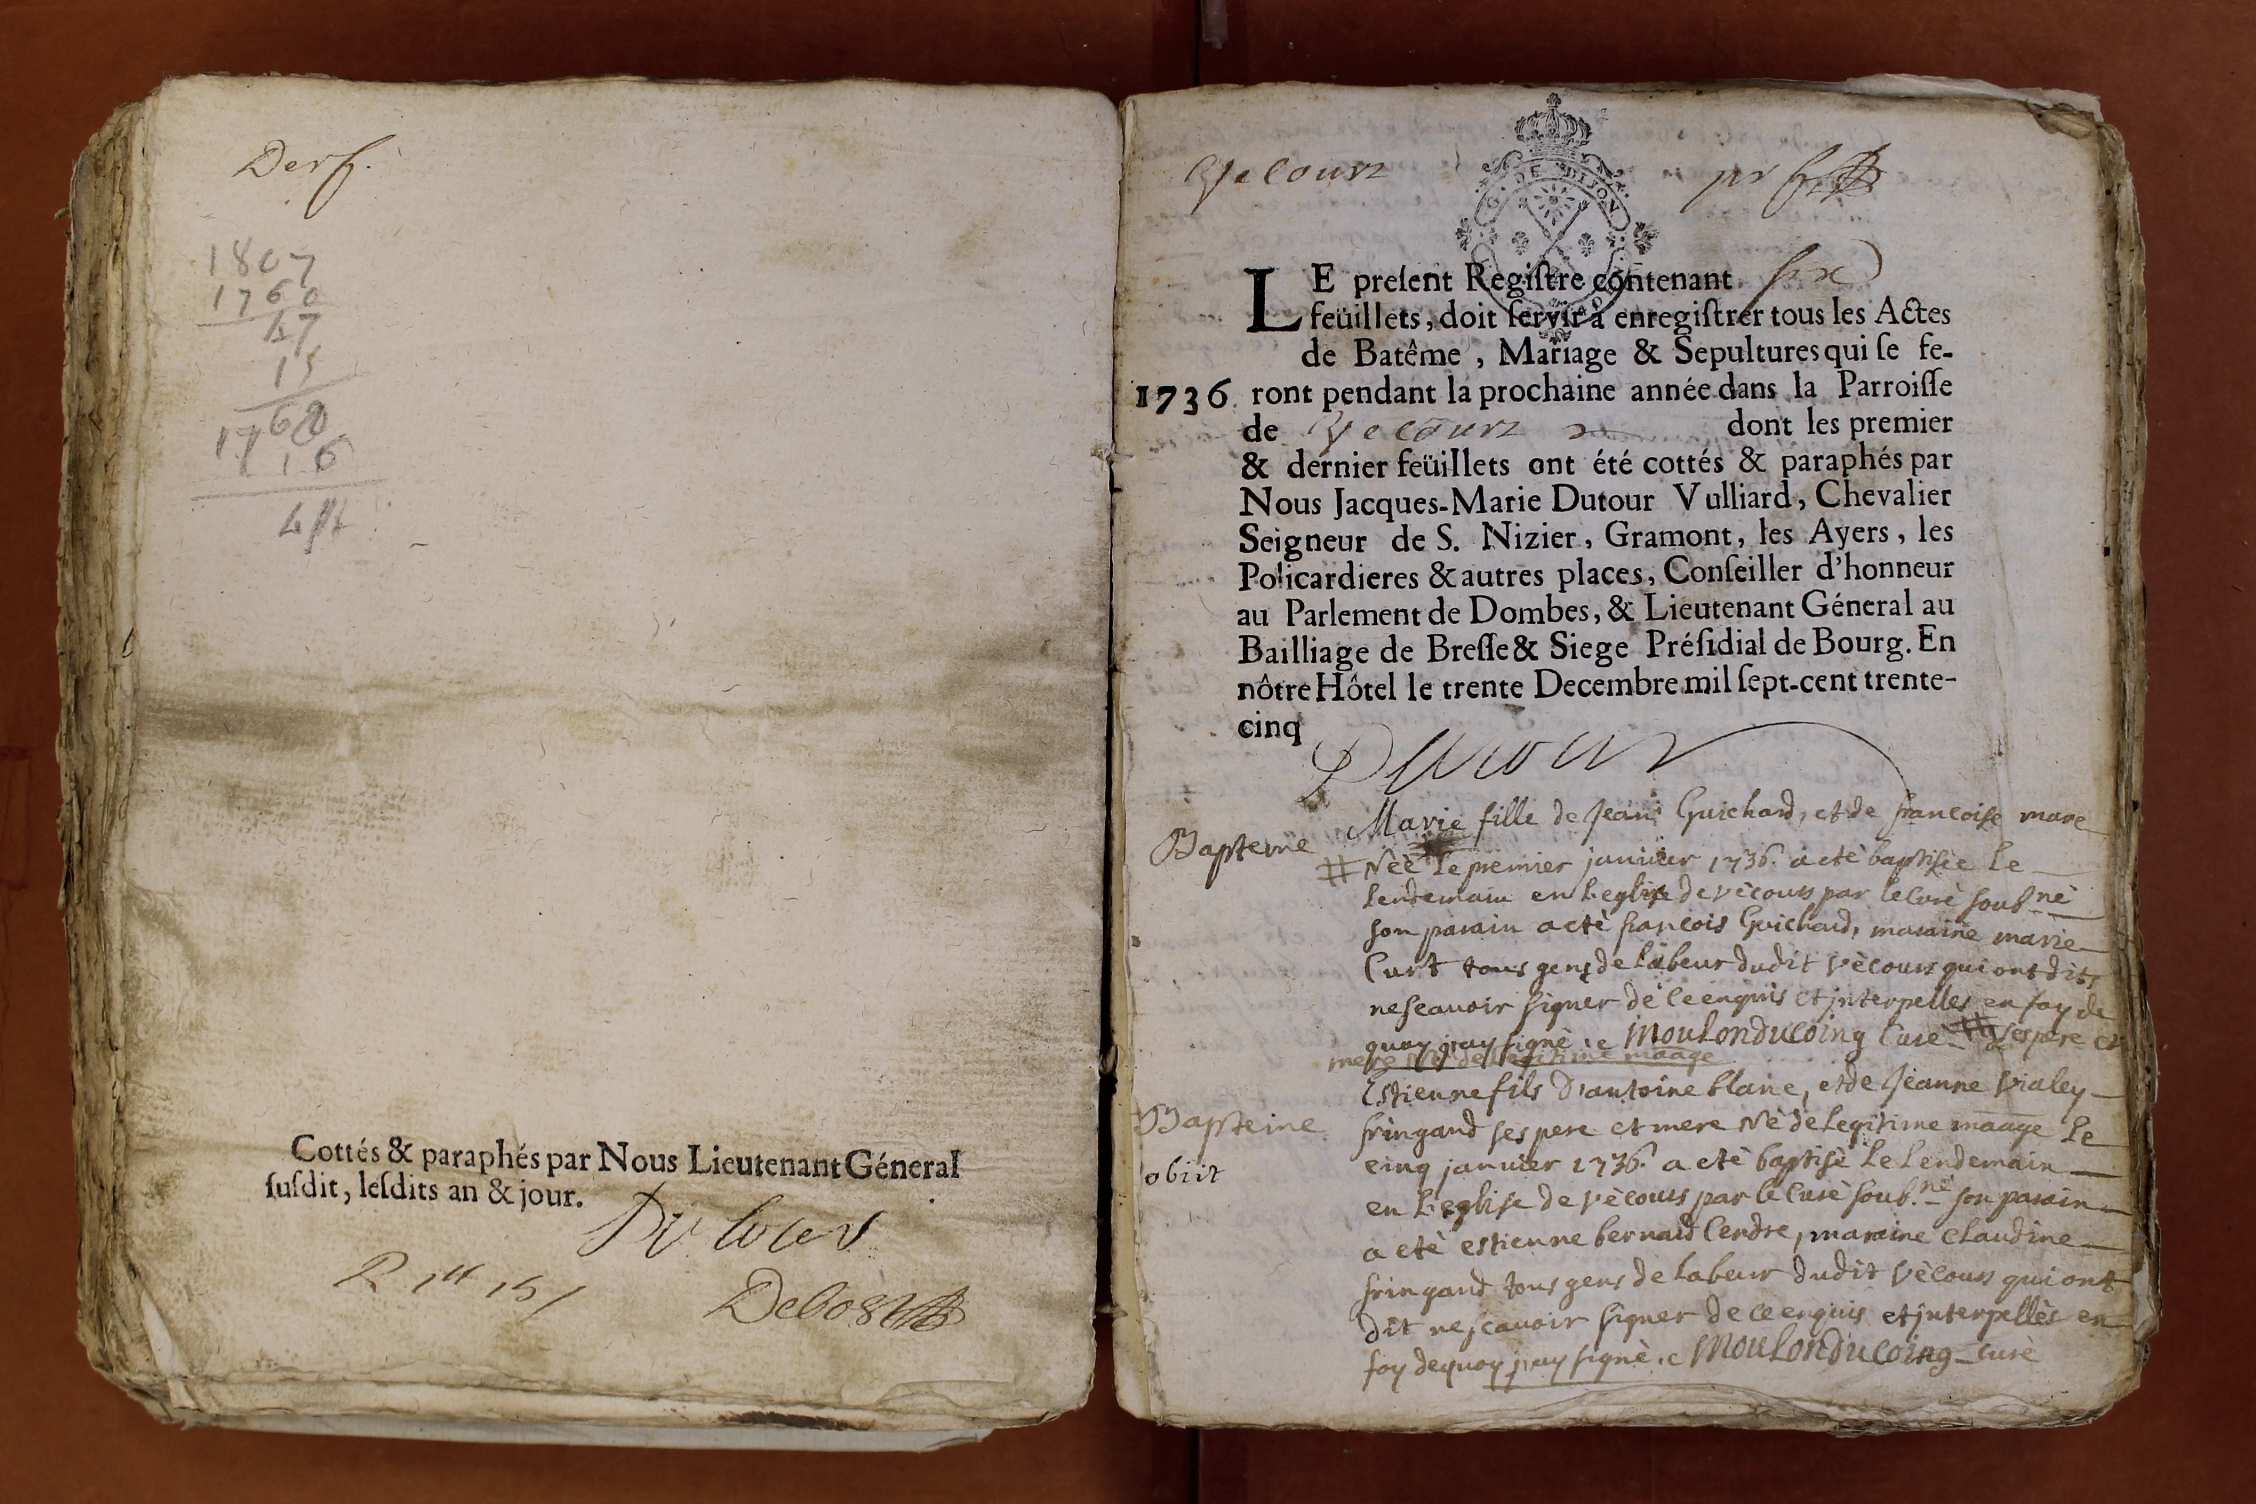 Derf.
1807
1760
47
15
1760
16
Cottés & paraphés par Nous Lieutenant Géneral
ſuſdit, leſdits an & jour.
Dutour
Debost
Vecours
G. DE DIJON
LE preſent Regiſtre contenant six
feüillets, doit ſervir à enregiſtrer tous les Actes
de Batême, Mariage & Sepultures qui ſe fe-
1736 ront pendant la prochaine année dans la Parroiſſe
de Vecours dont les premier
& dernier feüillets ont été cottés & paraphés par
Nous Jacques-Marie Dutour Vulliard, Chevalier
Seigneur de S. Nizier, Gramont, les Ayers, les
Policardieres & autres places, Conſeiller d'honneur
au Parlement de Dombes, & Lieutenant Géneral au
Bailliage de Breſſe & Siege Préſidial de Bourg. En
nôtre Hôtel le trente Decembre mil ſept-cent trente-
cinq
Dutour
Bapteme
Marie fille de Jean Guichard, et de francoise mare
# Néè le premier janvier 1736. a eté baptisèe le
lendemain en L'eglise de vècours par le Curè soub.né
son parain a etè francois Guichard, maraine marie
Curt tous gens de labeur dudit vècours qui ont dits
ne scavoir signer de ce enquis et jnterpelles en foy de
quoy j'ay signè. MoulonduCoing Curè # ses pere et
mere Née de legitime maage
Bapteme
obiit
Estienne fils d'antoine blanc, et de Jèanne Vialey
fringand ses pere et mere Né de Legitime maage Le
cinq janvier 1736. a etè baptisè Le Lendemain
en L'eglise de vècours par le Curè soub.né son parain
a etè estienne bernard Cendre, maraine claudine
fringand tous gens de labeur dudit vècours qui ont
dit ne scavoir signer de ce enquis et jnterpellès en
foy dequoy j'ay signè. MoulonduCoing curè